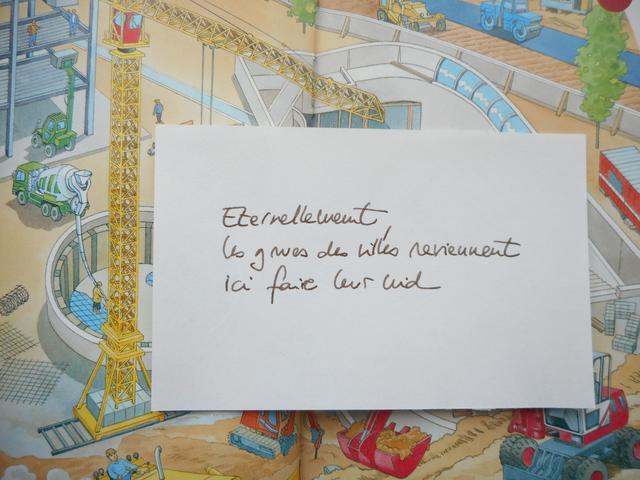 Eternellement,
les grues des villes reviennent
ici faire leur nid